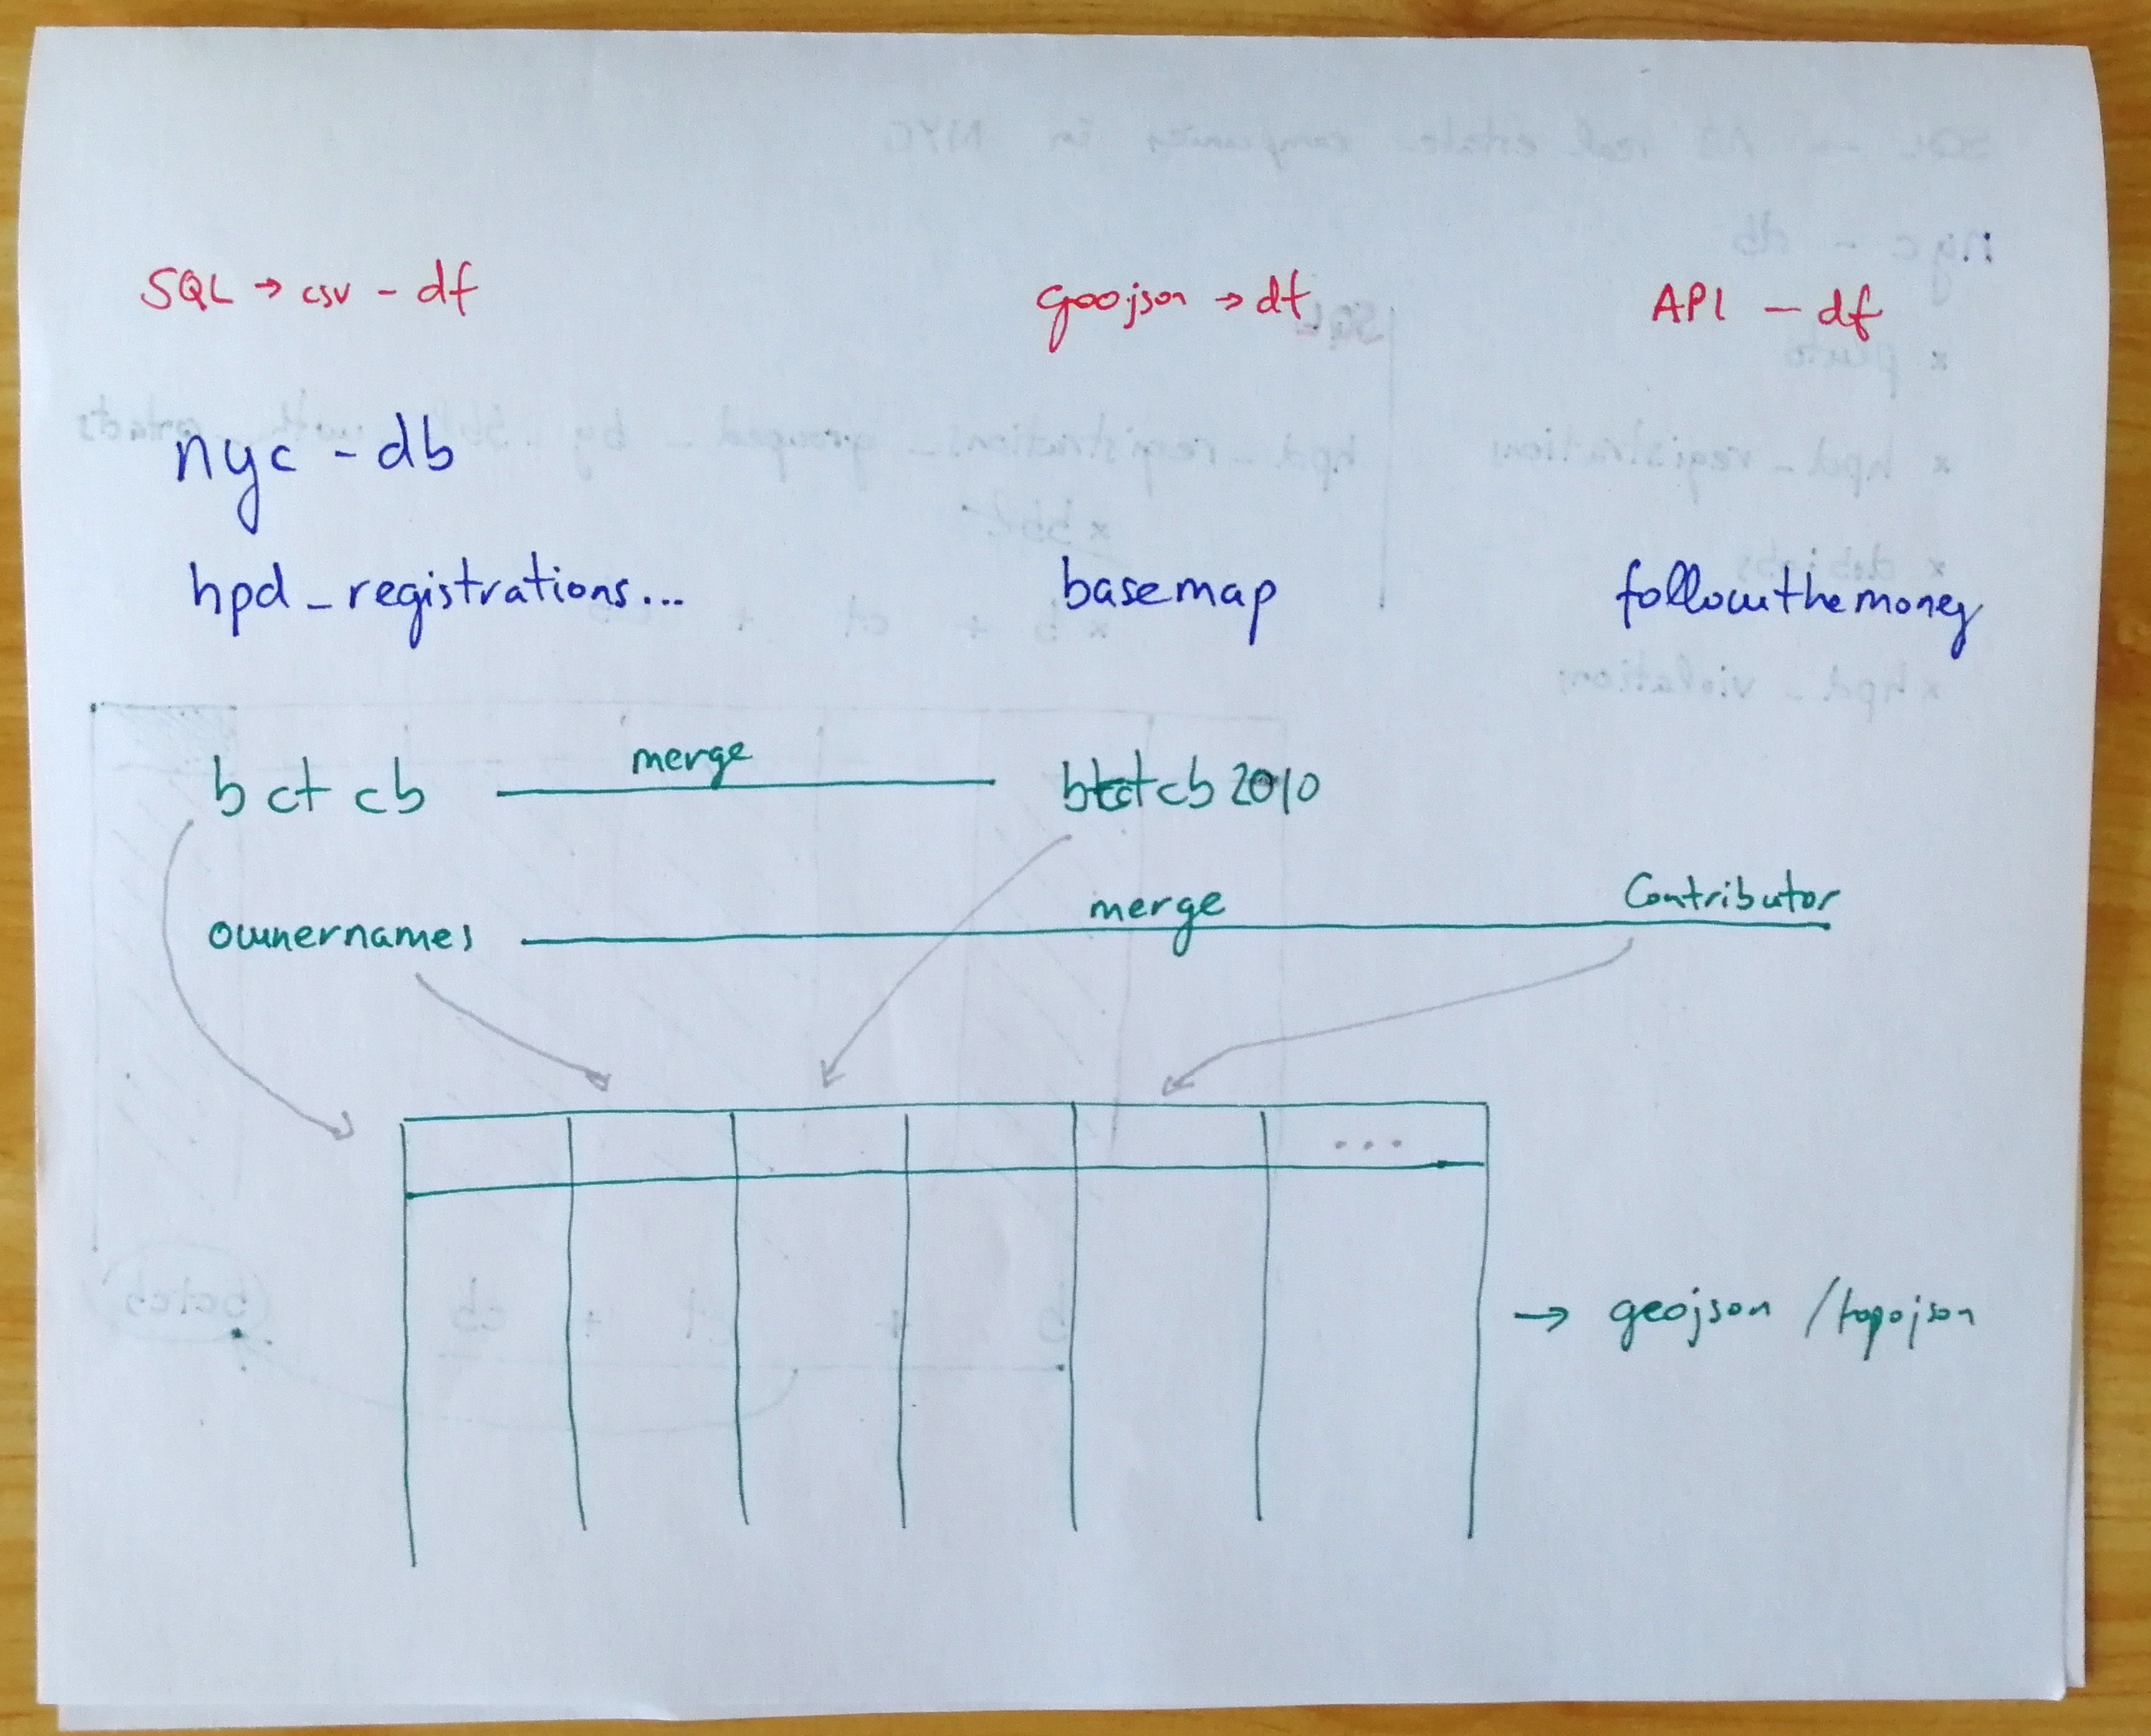 SQL → csv - df
goojson → df
API - df
nyc - db
hpd_registrations...
basemap
followthemoney
bctcb
merge
bctcb2010
ownernames
merge
Contributor
...
→ geojson / topojson